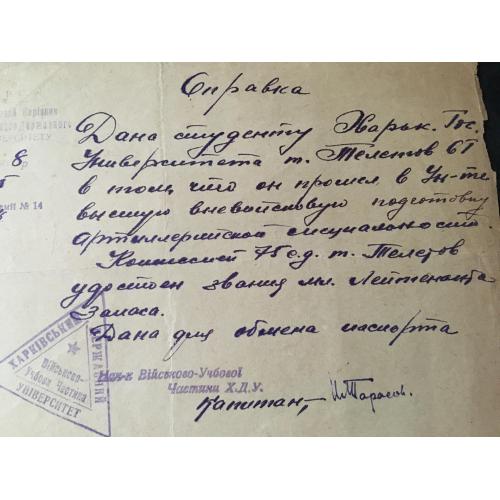 Справка
Дана студенту Харьк. Гос.
Университета т. Телетов
в том, что он прошел в Ун-те
высшую вневойсковую подготовку
артиллерийской специальности.
Комиссией 75 с.д. т. Телетов
удостоен звания мл. Лейтенанта
Запаса.
Дана для обмена паспорта
№ 14
ХАРКІВСЬКИЙ ДЕРЖАВНИЙ УНІВЕРСИТЕТ
Військово-
Учбова Частина
Нач-к Військово-Учбової
Частини Х.Д.У.
Капитан,
Тарасов.